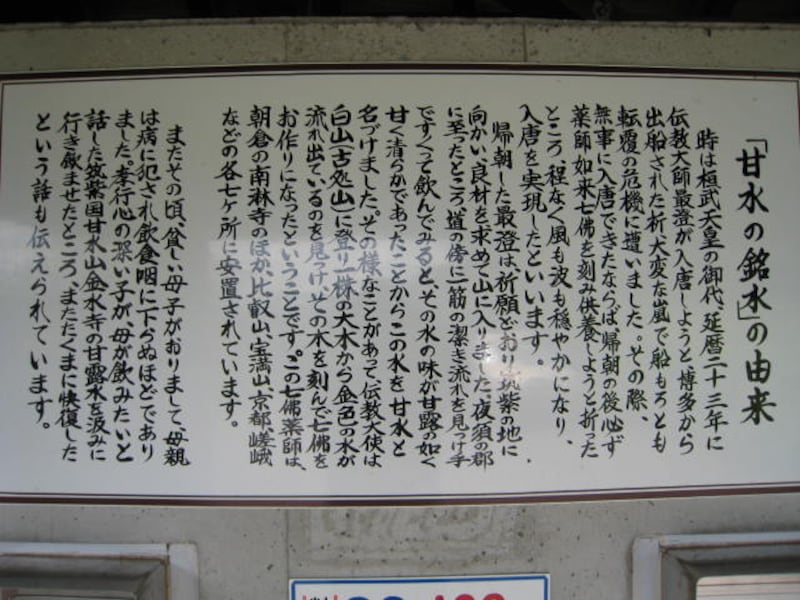 「甘水の銘水」の由来
時は桓武天皇の御代、延暦二十三年に
伝教大師最澄が入唐しようと博多から
出船された折、大変な嵐で船もろとも
転覆の危機に遭いました。その際、
無事に入唐できたならば、帰朝の後必ず
薬師如来七佛を刻み供養しようと祈った
ところ、程なく風も波も穏やかになり、
入唐を実現したといいます。
帰朝した最澄は祈願どおり筑紫の地に
向かい、良材を求めて山に入りました。夜須の郡
に至ったところ、道の傍に一筋の潔き流れを見つけ手
ですくって飲んでみると、その水の味が甘露の如く
甘く清らかであったことからこの水を甘水と
名づけました。その様なことがあって、伝教大使は
白山(古処山)に登り一株の大木から金色の水が
流れ出ているのを見つけ、その木を刻んで七佛を
お作りになったということです。この七佛薬師は、
朝倉の南淋寺のほか、比叡山、宝満山、京都、嵯峨
などの各七ヶ所に安置されています。
またその頃、貧しい母子がおりまして、母親
は病に犯され飲食咽に下らぬほどであり
ました。孝行心の深い子が、母が飲みたいと
話した筑紫国甘水山金水寺の甘露水を汲みに
行き飲ませたところ、またたくまに快復した
という話も伝えられています。